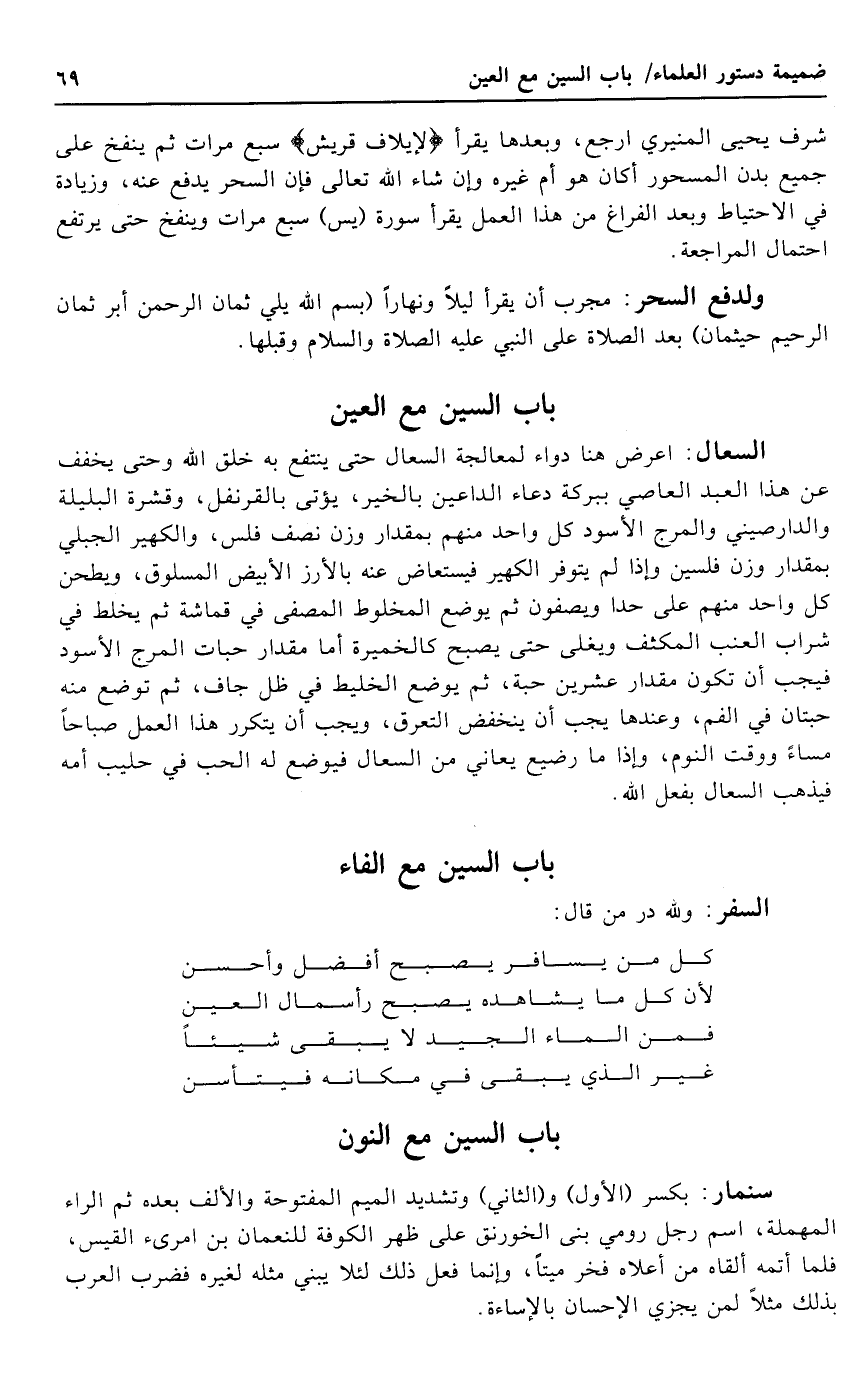 ضميمة دستور العلماء/ باب السين مع العين ٦٩
شرف يحيى المنيري ارجع، وبعدها يقرأ ﴿لإيلاف قريش﴾ سبع مرات ثم ينفخ على
جميع بدن المسحور أكان هو أم غيره وإن شاء الله تعالى فإن السحر يدفع عنه، وزيادة
في الاحتياط وبعد الفراغ من هذا العمل يقرأ سورة (يس) سبع مرات وينفخ حتى يرتفع
احتمال المراجعة.
ولدفع السحر: مجرب أن يقرأ ليلاً ونهاراً (بسم الله يلي ثمان الرحمن أبر ثمان
الرحيم حيثمان) بعد الصلاة على النبي عليه الصلاة والسلام وقبلها.
باب السين مع العين
السعال: اعرض هنا دواء لمعالجة السعال حتى ينتفع به خلق الله وحتى يخفف
عن هذا العبد العاصي ببركة دعاء الداعين بالخير، يؤتى بالقرنفل، وقشرة البليلة
والدارصيني والمرج الأسود كل واحد منهم بمقدار وزن نصف فلس، والكهير الجبلي
بمقدار وزن فلسين وإذا لم يتوفر الكهير فيستعاض عنه بالأرز الأبيض المسلوق، ويطحن
كل واحد منهم على حدا ويصفون ثم يوضع المخلوط المصفى في قماشة ثم يخلط في
شراب العنب المكثف ويغلى حتى يصبح كالخميرة أما مقدار حبات المرج الأسود
فيجب أن تكون مقدار عشرين حبة، ثم يوضع الخليط في ظل جاف، ثم توضع منه
حبتان في الفم، وعندها يجب أن ينخفض التعرق، ويجب أن يتكرر هذا العمل صباحاً
مساءً ووقت النوم، وإذا ما رضيع يعاني من السعال فيوضع له الحب في حليب أمه
فيذهب السعال بفعل الله.
باب السين مع الفاء
السفر: ولله در من قال:
كل من يسافر يصبح أفضل وأحسن
لأن كل ما يشاهده يصبح رأسمال العين
فمن الماء الجيد لا يبقى شيئاً
غير الذي يبقى في مكانه فيتأسن
باب السين مع النون
سنمار: بكسر (الأول) و(الثاني) وتشديد الميم المفتوحة والألف بعده ثم الراء
المهملة، اسم رجل رومي بنى الخورنق على ظهر الكوفة للنعمان بن امرىء القيس،
فلما أتمه ألقاه من أعلاه فخر ميتاً، وإنما فعل ذلك لئلا يبني مثله لغيره فضرب العرب
بذلك مثلاً لمن يجزي الإحسان بالإساءة.